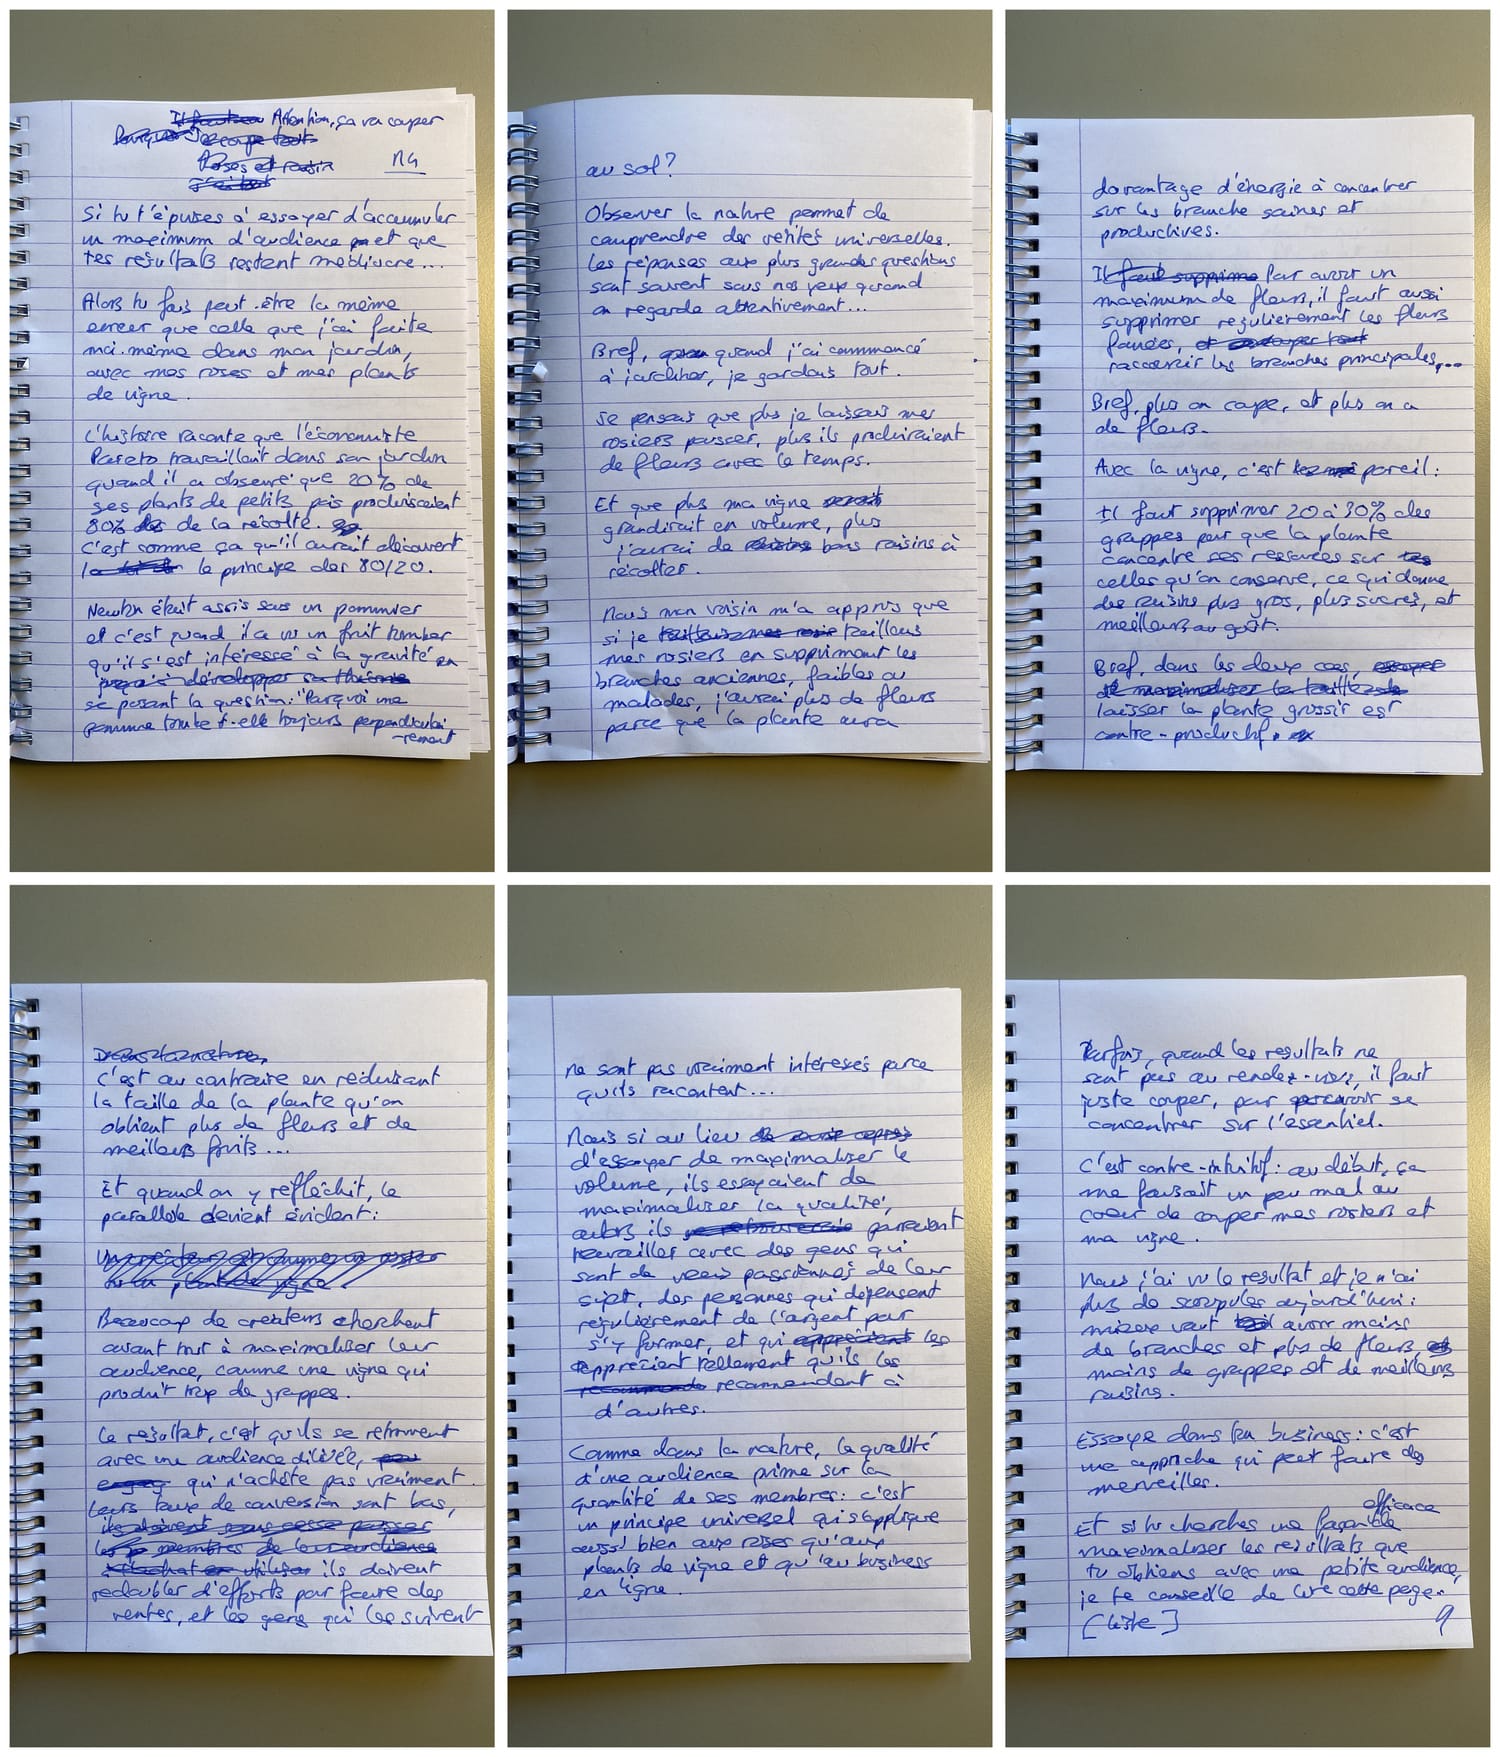 Attention, ça va couper
N4
Si tu t'épuises à essayer d'accumuler
un maximum d'audience et que
tes résultats restent médiocre...
Alors tu fais peut-être la même
erreur que celle que j'ai faite
moi-même dans mon jardin,
avec mes roses et mes plants
de vigne.
L'histoire raconte que l'économiste
Pareto travaillait dans son jardin
quand il a observé que 20% de
ses plants de petits pois produisaient
80% de la récolte.
C'est comme ça qu'il aurait découvert
le principe des 80/20.
Newton était assis sous un pommier
et c'est quand il a vu un fruit tomber
qu'il s'est intéressé à la gravité en
se posant la question: "Parquoi une
pomme tombe t-elle toujours perpendiculai
-rement
au sol?
Observer la nature permet de
comprendre des vérités universelles.
Les réponses aux plus grandes questions
sont souvent sous nos yeux quand
on regarde attentivement...
Bref, quand j'ai commencé
à jardiner, je gardais tout.
Je pensais que plus je laissais mes
rosiers pousser, plus ils produiraient
de fleurs avec le temps.
Et que plus ma vigne
grandirait en volume, plus
j'aurai de bons raisins à
récolter.
Mais mon voisin m'a appris que
si je taillais
mes rosiers en supprimant les
branches anciennes, faibles ou
malades, j'aurai plus de fleurs
parce que la plante aura
davantage d'énergie à concentrer
sur les branche saines et
productives.
Par avoir un
maximum de fleurs, il faut aussi
supprimer régulièrement les fleurs
fanées,
raccourcir les branches principales,...
Bref, plus on coupe, et plus on a
de fleurs.
Avec la vigne, c'est pareil:
Il faut supprimer 20 à 30% des
grappes pour que la plante
concentre ses ressources sur
celles qu'on conserve, ce qui donne
des raisins plus gros, plus sucrés, et
meilleurs au goût.
Bref, dans les deux cas,
laisser la plante grossir est
contre-productif.
C'est au contraire en réduisant
la taille de la plante qu'on
obtient plus de fleurs et de
meilleurs fruits...
Et quand on y réfléchit, le
parallèle devient évident:
Beaucoup de créateurs cherchent
avant tout à maximaliser leur
audience, comme une vigne qui
produit trop de grappes.
Le résultat, c'est qu'ils se retrouvent
avec une audience diluée,
qui n'achète pas vraiment.
Leurs taux de conversion sont bas,
ils doivent
redoubler d'efforts pour faire des
ventes, et les gens qui les suivent
ne sont pas vraiment intéressés parce
qu'ils racontent...
Mais si au lieu
d'essayer de maximaliser le
volume, ils essayaient de
maximaliser la qualité,
alors ils pourraient
travailler avec des gens qui
sont de vrais passionnés de leur
sujet, des personnes qui dépensent
régulièrement de l'argent pour
s'y former, et qui les
apprécient tellement qu'ils les
recommandent à
d'autres.
Comme dans la nature, la qualité
d'une audience prime sur la
quantité de ses membres: c'est
un principe universel qui s'applique
aussi bien aux roses qu'aux
plants de vigne et qu'au business
en ligne.
Parfois, quand les résultats ne
sont pas au rendez-vous, il faut
juste couper, pour se
concentrer sur l'essentiel.
C'est contre-intuitif: au début, ça
me faisait un peu mal au
coeur de couper mes rosiers et
ma vigne.
Mais j'ai vu le résultat et je n'ai
plus de scrupules aujourd'hui:
mieux vaut avoir moins
de branches et plus de fleurs,
moins de grappes et de meilleurs
raisins.
Essaye dans ton business: c'est
une approche qui peut faire des
merveilles.
efficace
Et si tu cherches une façon de
maximaliser les résultats que
tu obtiens avec une petite audience,
je te conseille de lire cette page.
[ liste ]
9